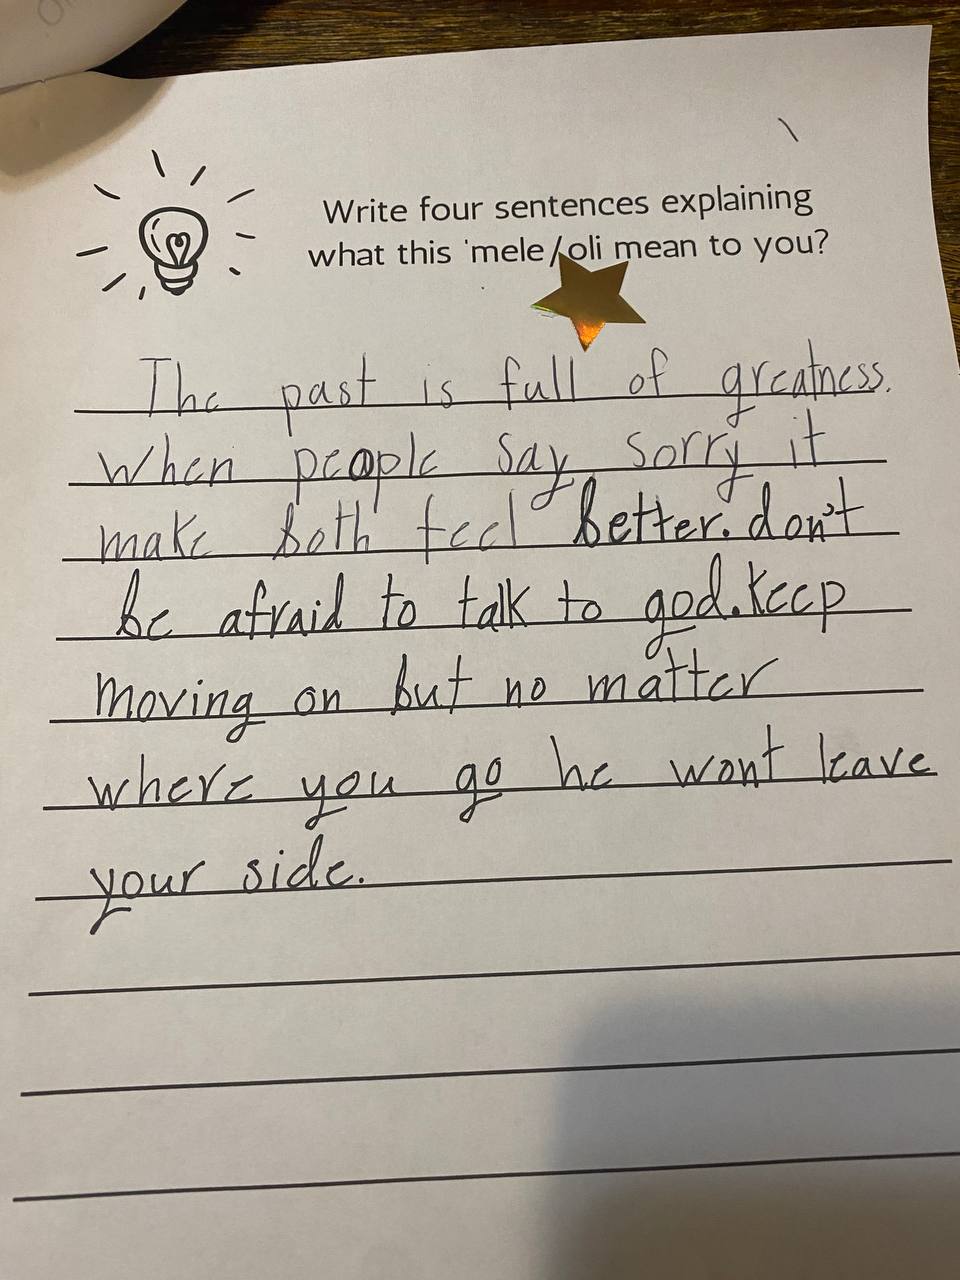 Write four sentences explaining
what this 'mele/oli mean to you?
The past is full of greatness.
When people say sorry it
make both feel better. don't
be afraid to talk to god. keep
moving on but no matter
where you go he wont leave
your side.